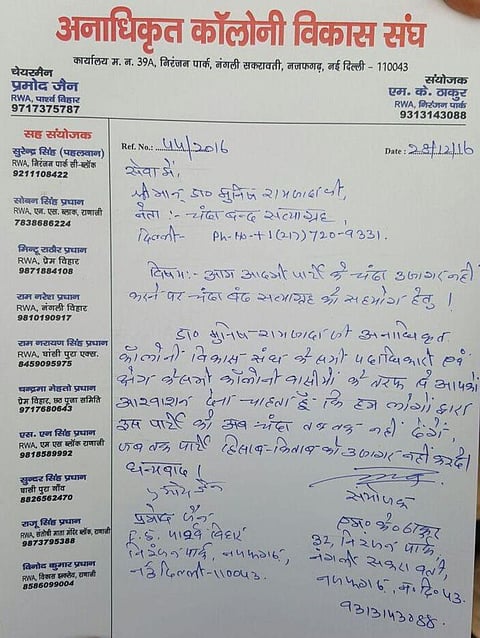 अनाधिकृत कॉलोनी विकास संघ
कार्यालय म. न. 39A, निरंजन पार्क, नंगली सकरावती, नजफगढ़, नई दिल्ली - 110043
चेयरमैन
प्रमोद जैन
RWA, पार्श्व विहार
9717375787
संयोजक
एम. के. ठाकुर
RWA, निरंजन पार्क
9313143088
सह संयोजक
सुरेन्द्र सिंह (पहलवान)
RWA, निरंजन पार्क सी-ब्लॉक
9211108422
सोबन सिंह प्रधान
RWA, एन. एस. ब्लाक, राणाजी
7838686224
मिन्टू राठौर प्रधान
RWA, प्रेम विहार
9871884108
राम नरेश प्रधान
RWA, नंगली विहार
9810190917
राम नरायण सिंह प्रधान
RWA, घासी पुरा एक्स.
8459095975
चन्द्रमा मेहतो प्रधान
प्रेम विहार, छठ पूजा समिति
9717680643
एस. एन सिंह प्रधान
RWA, एम एस ब्लॉक राणाजी
9818589992
सुन्दर सिंह प्रधान
घासी पुरा गाँव
8826562470
राजू सिंह प्रधान
RWA, संतोषी माता मंदिर ब्लॉक, राणाजी
9873795388
विनोद कुमार प्रधान
RWA, विकास इन्कलेव, राणाजी
8586099004
Ref. No.: 44/2016
Date : 28/12/16
सेवा में,
श्रीमान डा० मुनिष रायजादा जी,
नेता :- चंदा बन्द सत्याग्रह,
दिल्ली- Ph-No-+1(217)720-9331.
विषय:- आम आदमी पार्टी के चंदा उजागर नहीं
करने पर चंदा बंद सत्याग्रह को सहयोग हेतु !
डा० मुनिष-रायजादा जी अनाधिकृत
कॉलोनी विकास संघ के सभी पदाधिकारी एवं
क्षेत्र के सभी कॉलोनी वासियों के तरफ से आपको
आश्वाशन देना चाहता हूँ कि हम लोगों द्वारा
इस पार्टी को अब चंदा तब तक नहीं देंगे,
जब तक पार्टी हिसाब-किताब को उजागर नहीं करेंगे।
धन्यवाद !
प्रमोद जैन
पार्श्व विहार
निरंजन पार्क, नजफगढ़,
नई दिल्ली-110043.
संयोजक
एम० के० ठाकुर
32, निरंजन पार्क,
नंगली सकरावती,
नजफगढ़, न० दि० 43.
9313143088.